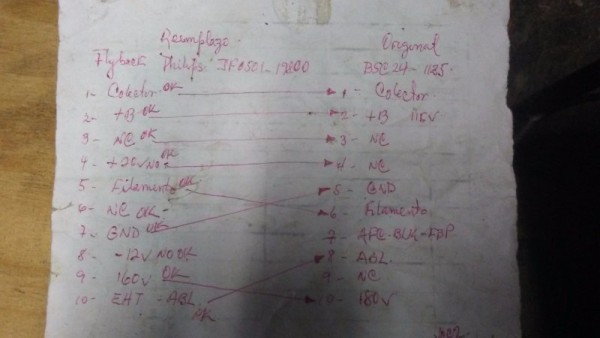 Reemplazo Original
Flyback Philips JF0501-19100 BSC24-1125-
1- Colector OK 1- Colector
2- +B OK 2- +B 115v
3- NC OK 3- NC
4- +20v NO OK 4- NC
5- Filamento OK 5- GND
6- NC OK- 6- Filamento
7- GND OK 7- AFC-BLK-FBP
8- -12v NO OK 8- ABL
9- 160v OK 9- NC
10- EHT-ABL OK 10- 180v